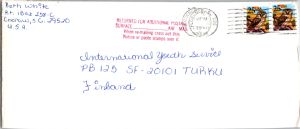 Beth White
Andrews, S.C. 29510
U.S.A.
RETURNED FOR ADDITIONAL POSTAGE
SURFACE AIR MAIL
When re-mailing cross out this
Notice or paste stamps over it
International Youth Service
PB 125 SF-20101 TURKU
Finland